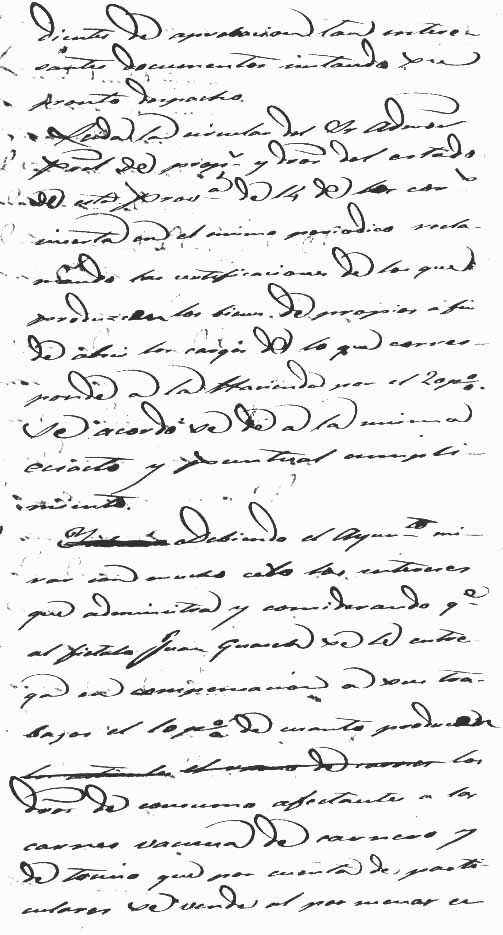 dientes de aprobacion tan intere-
santes documentos instando su
pronto despacho.
Leida la circular del Sr Admor
Pral de props y dros del estado
de esta Prova de 14 de los corrs
inserta en el mismo periodico recla-
mando las certificaciones de lo que
producen los bienes de propios a fin
de abrir los cargos de lo que corres-
ponde a la Hacienda por el 20 p%.
Se acordó se dé a la misma
exacto y puntual cumpli-
miento.
Debiendo el Ayunto mi-
rar con mucho celo los intereses
que administra y considerando qe
al fiel Juan Guasch se le entre-
ga en compensacion a sus tra-
bajos el 10 p% de cuanto producen
los
dros de consumo afectantes a las
carnes vacuna de carnero y
de tocino que por cuenta de parti-
culares se vende al por menor en